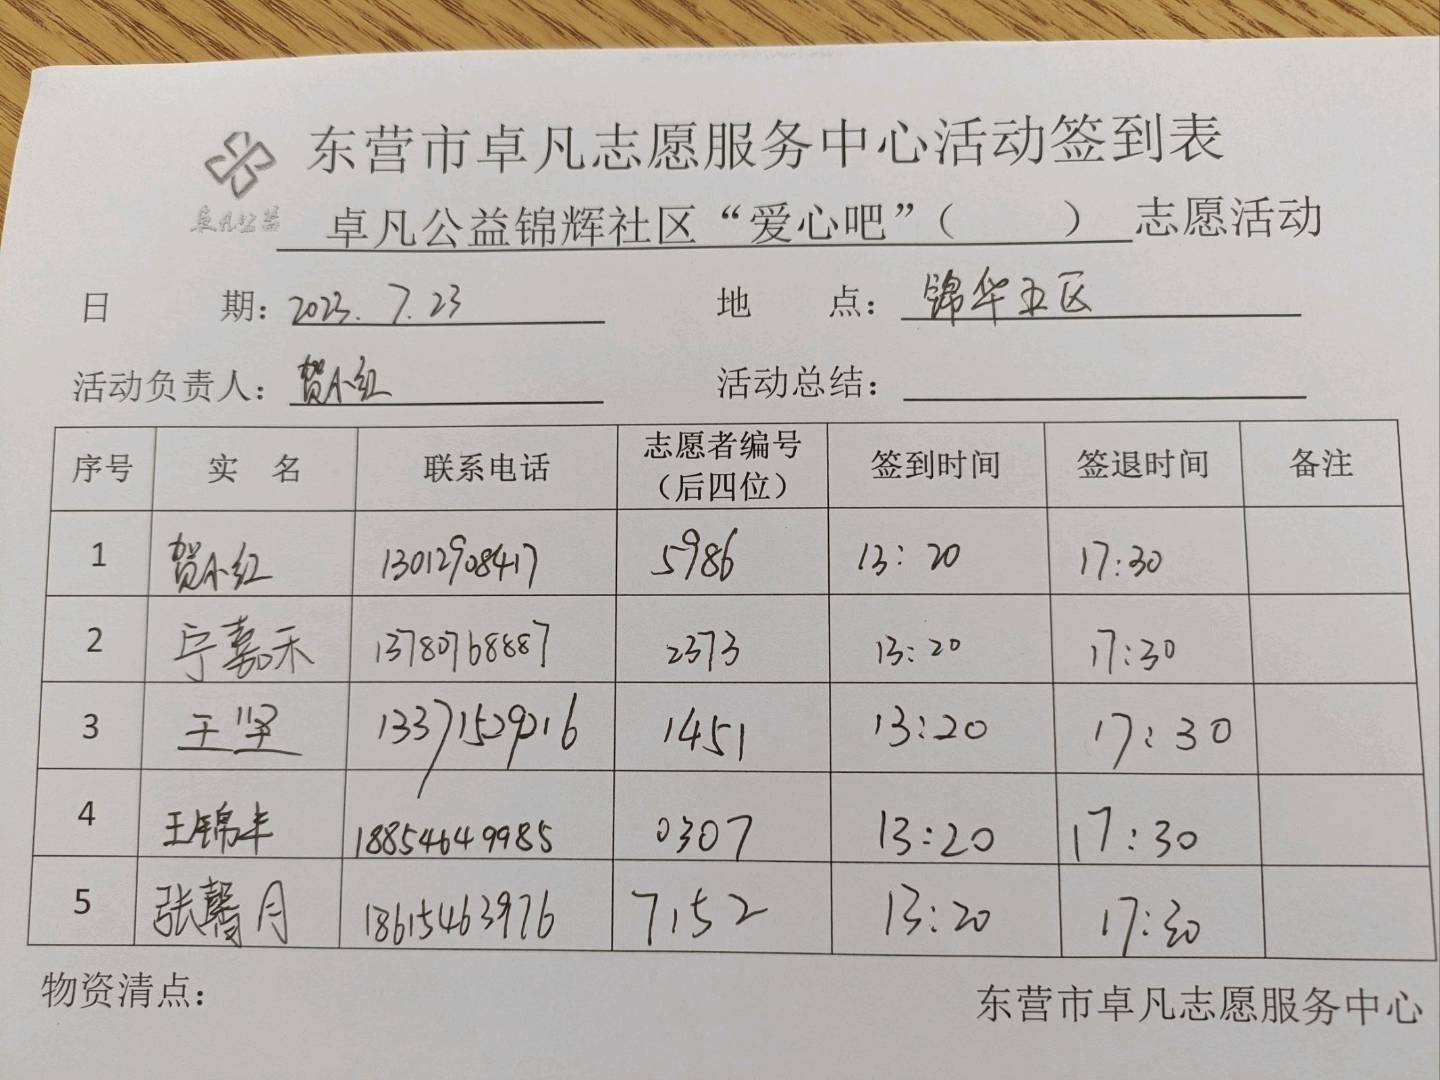 东营市卓凡志愿服务中心活动签到表
卓凡公益
卓凡公益锦辉社区“爱心吧”（ ）志愿活动
日 期：2023.7.23 地 点：锦华五区
活动负责人：贺小红 活动总结：
序号 实 名 联系电话 志愿者编号（后四位） 签到时间 签退时间 备注
1 贺小红 13012908417 5986 13:20 17:30
2 宁嘉禾 13780768887 2373 13:20 17:30
3 王坚 13371529216 1451 13:20 17:30
4 王锦丰 18854649985 0307 13:20 17:30
5 张馨月 18615463976 7152 13:20 17:30
物资清点：
东营市卓凡志愿服务中心